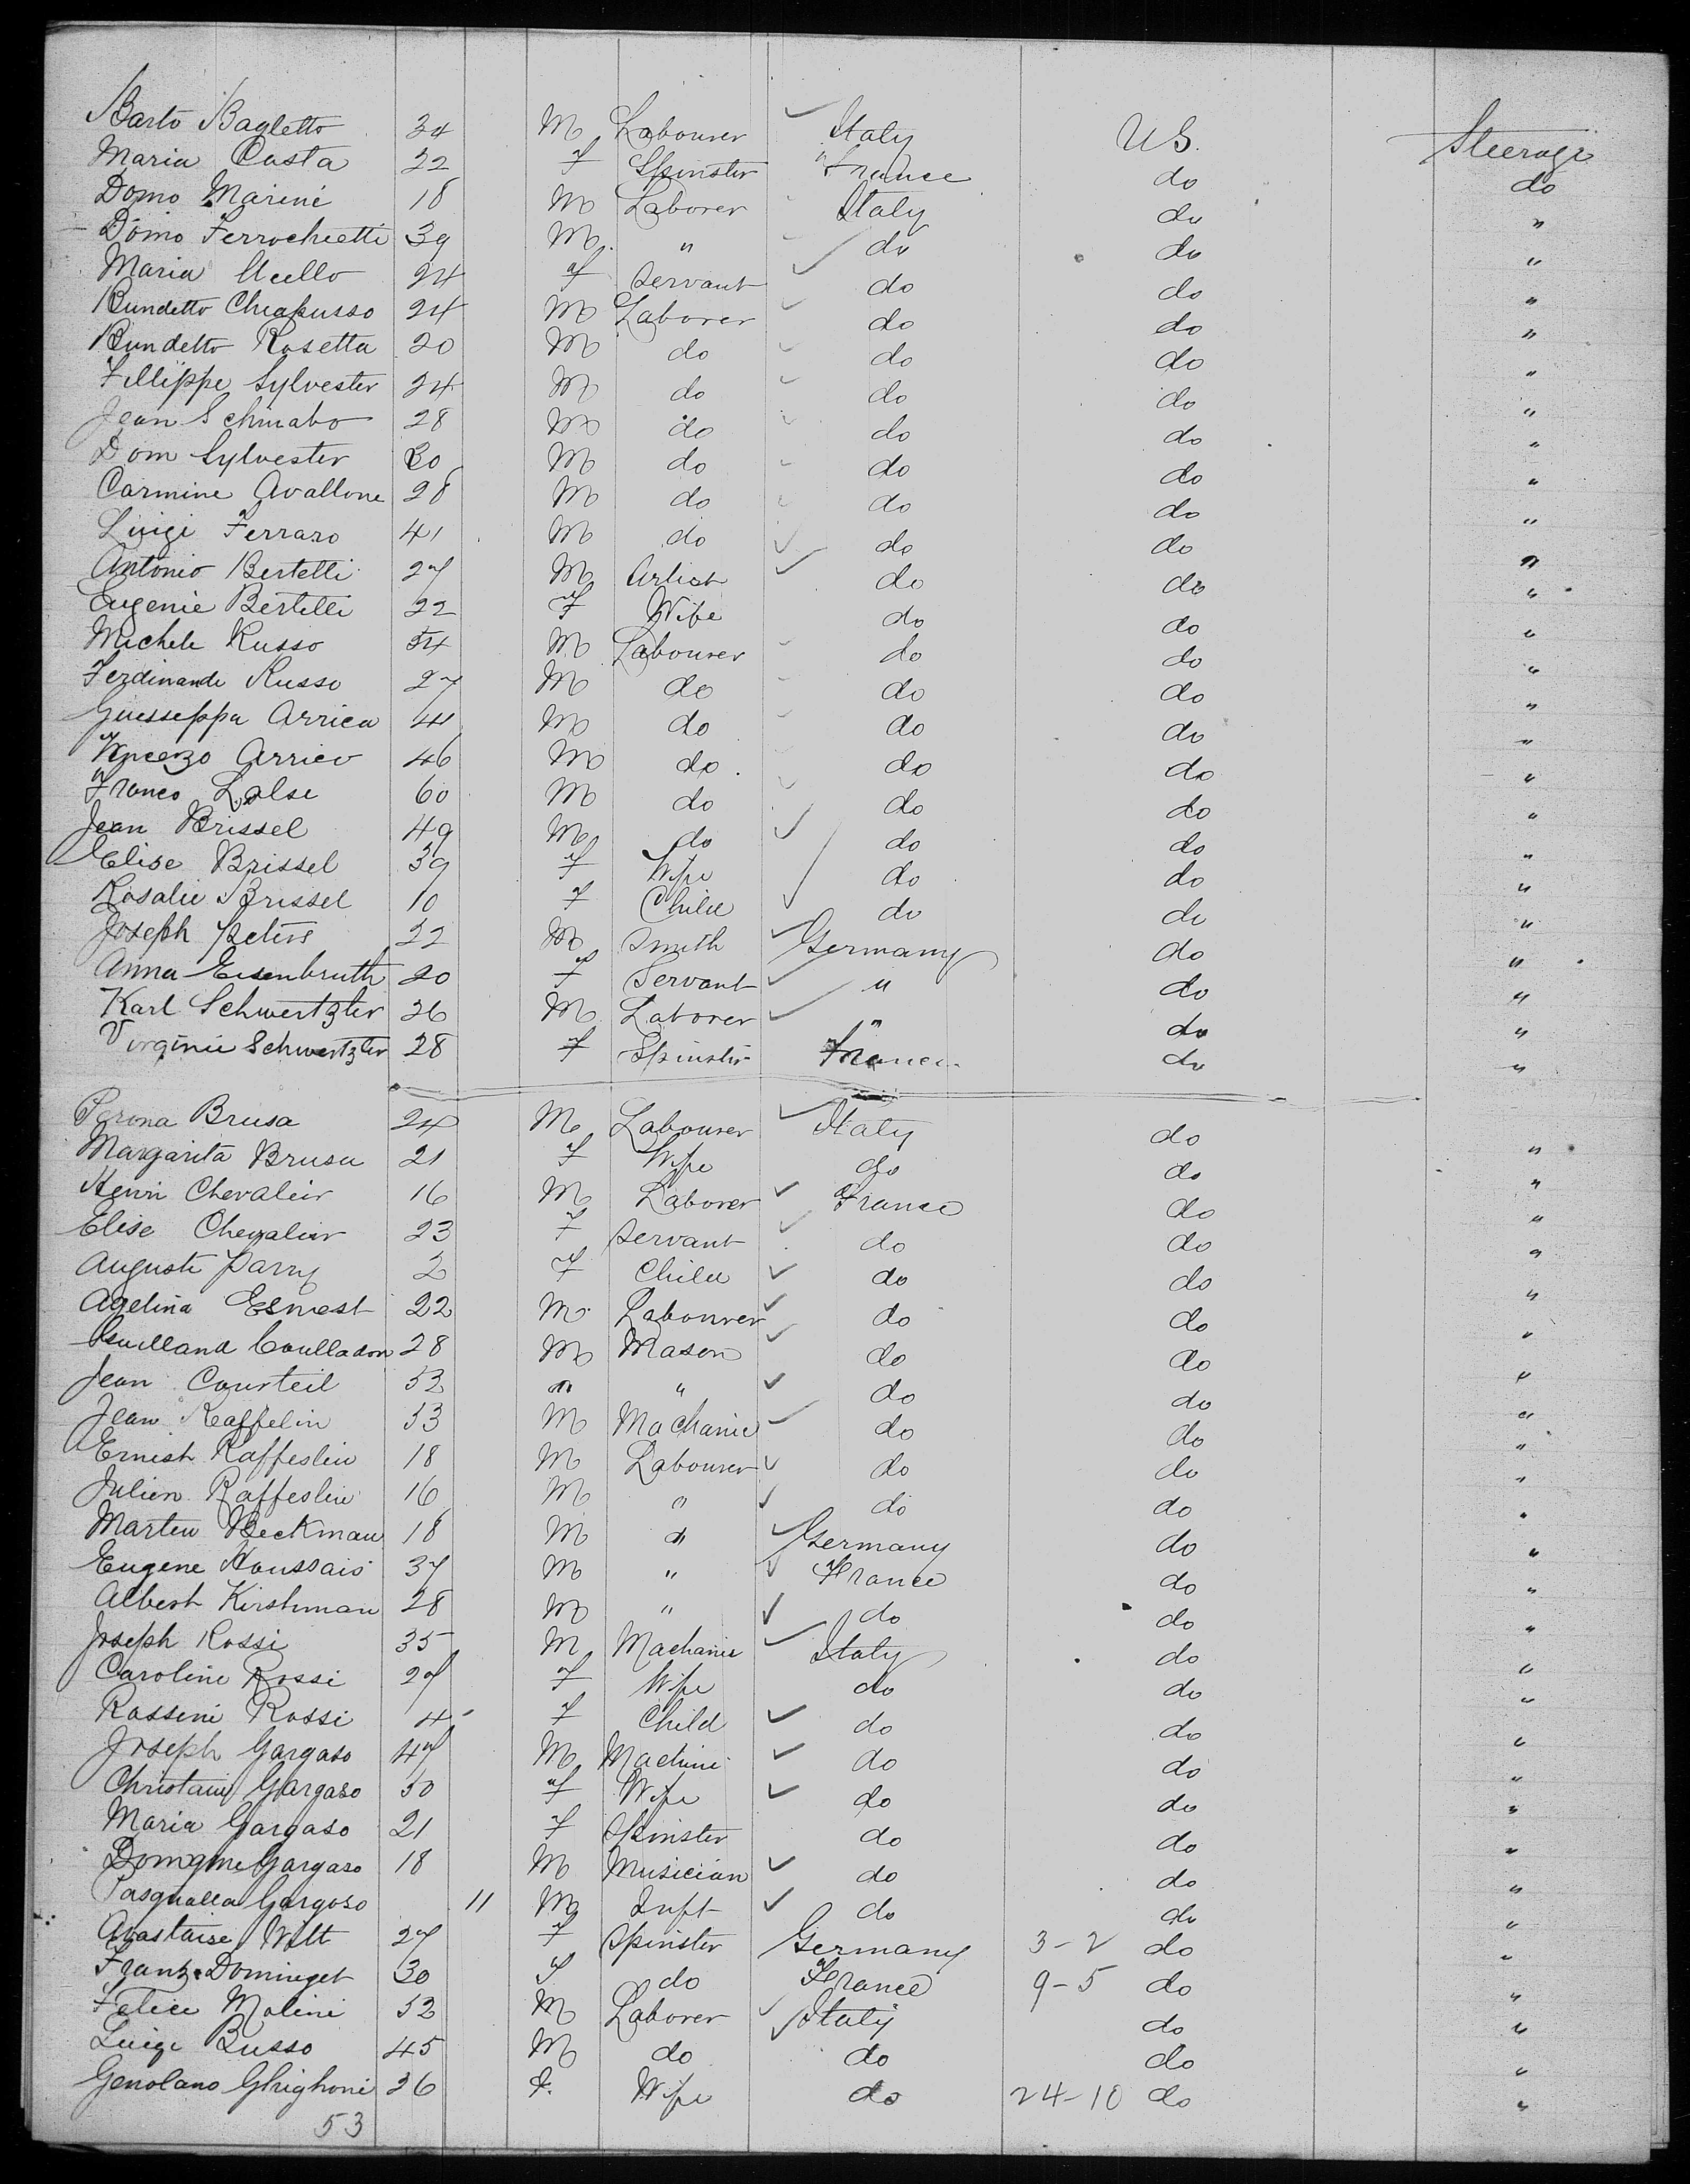 Barto Bagletto 34 M Labourer Italy U.S. Steerage
Maria Costa 22 F Spinster " France do do
Domo Marini 18 M Laborer Italy do "
Domo Ferrochietti 39 M " do do "
Maria Ucello 24 F Servant do do "
Bundetto Chiapusso 24 M Laborer do do "
Bundetto Rosetta 20 M do do do "
Fillippe Sylvester 24 M do do do "
Jean Schinabo 28 M do do do "
Dom Sylvester 30 M do do do "
Carmine Avallone 28 M do do do "
Luigi Ferraro 41 M do do do "
Antonio Bertelli 27 M Artist do do "
Eugenie Bertelli 22 F Wife do do "
Michele Russo 54 M Labourer do do "
Ferdinande Russo 27 M do do do "
Guesseppa Arrica 41 M do do do "
Vincenzo Arrico 46 M do do do "
Franco Lalse 60 M do do do "
Jean Brissel 49 M do do do "
Elise Brissel 39 F Wife do do "
Rosalie Brissel 10 F Child do do "
Joseph Peters 22 M Smith Germany do "
Anna Eisenbruth 20 F Servant " do "
Karl Schwertzler 26 M Laborer " do "
Virginie Schwertzler 28 F Spinster France do "
Perona Brusa 24 M Labourer Italy do "
Margarita Brusa 21 F Wife do do "
Henri Chevaleir 16 M Laborer France do "
Elise Chevaleir 23 F Servant do do "
Auguste Parry 2 F Child do do "
Agelina Esnest 22 M Labourer do do "
Coulladon 28 M Mason do do "
Jean Courteil 52 M " do do "
Jean Raffelin 53 M Machanic do do "
Ernest Raffeslin 18 M Labourer do do "
Julien Raffeslin 16 M " do do "
Marten Beckman 18 M " Germany do "
Eugene Houssais 37 M " France do "
Albert Kirshman 28 M " do do "
Joseph Rossi 35 M Machanic Italy do "
Caroline Rossi 27 F Wife do do "
Rossini Rossi 4 F Child do do "
Joseph Gargaso 47 M Machini do do "
Christaine Gargaso 50 F Wife do do "
Maria Gargaso 21 F Spinster do do "
Domgine Gargaso 18 M Musician do do "
Pasqualla Gargoso 11 M Inft do do "
Anastaise Wilt 27 F Spinster Germany 3-2 do "
Frantz Dominget 30 F do France 9-5 do "
Felice Molini 52 M Laborer Italy do "
Luigi Russo 45 M do do do "
Genolano Ghighoni 26 F. Wife do 24-10 do "
53